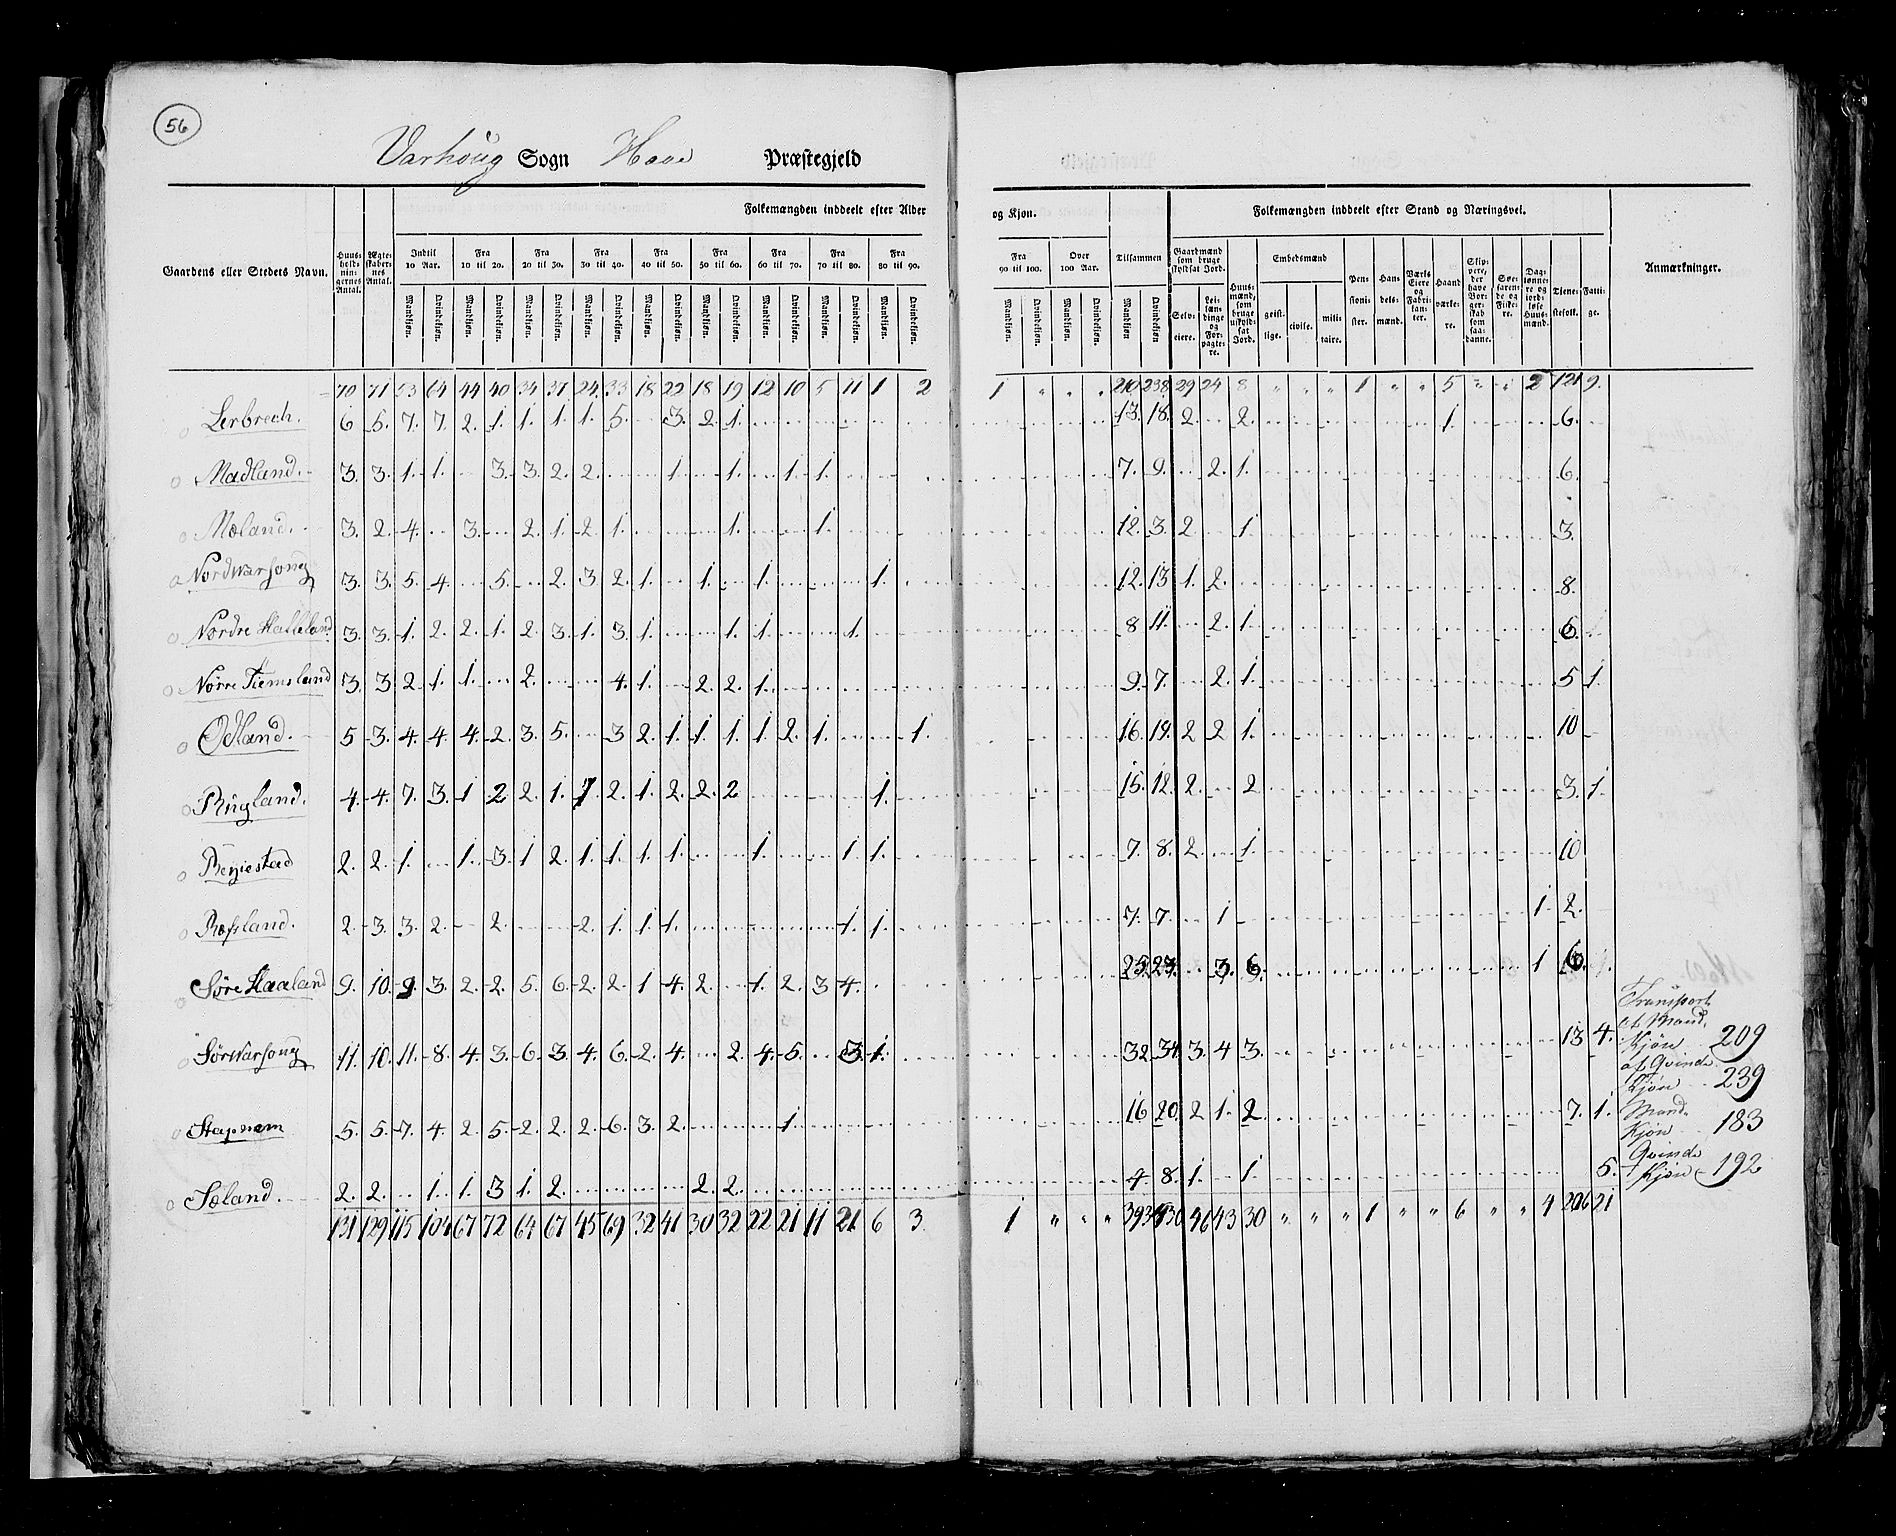 56
Varhoug Sogn Haae Præstegjeld
Folkemængden inddeelt efter Alder og Kjøn. Tilsammen Folkemængden inddeelt efter Stand og Næringsvei.
Gaardens eller Stedets Navn. Huus-holdnin-gernes Antal. Ægte-skaber-nes Antal. Indtil 10 Aar. Fra 10 til 20. Fra 20 til 30. Fra 30 til 40. Fra 40 til 50. Fra 50 til 60. Fra 60 til 70. Fra 70 til 80. Fra 80 til 90. Fra 90 til 100. Over 100 Aar. Gaardmænd som bruge skyldsat Jord. Huus-mænd, som bruge uskyld-sat Jord. Embedsmænd Pen-sioni-ster. Han-dels-mænd. Værks Eiere og Fabri-kan-ter. Haand værke-re. Skip-pere, der have Bor-ger-skab som saa-danne. Søe-faren-de og Fiske-re. Dag-lønne-re og jord-løse Huus-mænd. Tjene-stefolk. Fatti-ge. Anmærkninger.
Mandkjøn. Qvindekjøn. Mandkjøn. Qvindekjøn. Mandkjøn. Qvindekjøn. Mandkjøn. Qvindekjøn. Mandkjøn. Qvindekjøn. Mandkjøn. Qvindekjøn. Mandkjøn. Qvindekjøn. Mandkjøn. Qvindekjøn. Mandkjøn. Qvindekjøn. Mandkjøn. Qvindekjøn. Mandkjøn. Qvindekjøn. Mandkjøn Qvindekjøn Selv-eiere. Lei-læn-dinge og For-pagte-re. geist-lige. civile. mili-taire.
70 71 53 64 44 40 34 37 24 33 18 22 18 19 12 10 5 11 1 2 1 " " " 210 238 29 24 8 " " " 1 " " 5 " " 2 121 9.
Lerbrech. 6 5. 7. 7. 2. 1. 1. 1. 1. 5. 3. 2. 1. 13. 18. 2. 2. 1. 6.
Madland. 3. 3. 1. 1. 3. 3. 2. 2. 1. 1. 1. 1. 7. 9. 2. 1. 6.
Mæland. 3. 2. 4. 3. 2. 1. 2. 1. 1. 1. 12. 3. 2 1. 3.
Nordwarhoug 3. 3. 5. 4. 5. 2. 3 2. 1. 1. 1. 1. 12. 13 1. 2. 8.
Nordre Halleland 3. 3. 1. 2. 2. 1. 2. 3. 1. 3. 1. 1. 1. 1. 8 11. 2. 1. 6.
Nørre Tiemsland 3. 3 2. 1. 1. 2. 4. 1. 2. 2. 1. 9. 7. 2. 1. 5 1.
Odland. 5 3. 4. 4. 4. 2. 3. 5. 3 2. 1. 1. 1. 1. 2. 1. 1. 16. 19. 2 2 1. 10
Ringland. 4. 4. 7. 3. 1 2 2. 1. 1. 2. 1. 2. 2. 2 1. 15. 12. 2. 2 3. 1.
Reyiestad 2. 2. 1. 1. 3. 1 2. 1. 1. 1. 1. 1. 1 1. 7. 8. 2. 1. 10
Refsland. 2. 3. 3. 2. 2. 2. 1. 1. 1. 1. 1. 7. 7. 1 1. 2.
Søre Haaland 9. 10. 9. 3. 2. 2. 5. 6. 2. 2. 1 4. 2. 1. 2. 3 4. 25. 23. 3. 6. 1 6.
Sørwarhoug 11. 10. 11. 8. 4. 3. 6. 3. 4. 6. 2. 4. 2. 4. 5. 3. 1. 32. 34. 3. 4. 3. 13 4.
Stapnem 5. 5. 7. 4. 2. 5. 2. 2. 2. 6. 3. 2. 1. 16 20. 2 1. 2. 7. 1.
Sæland. 2. 2. 1. 1. 3 1. 2. 2. 2. 4 8. 1. 1. 5.
131 129 115 104 67 72 64 67 45 69 32 41 30 32 22 21 11 21 6 3 1 " " " 46 43 30 " " " 1 " " 6 " " 4 206 21
Transport
af Mand.
Kjøn 209
af Qvinde
Kjøn 239
Mand.
Kjøn 183
Qvinde
Kjøn 192